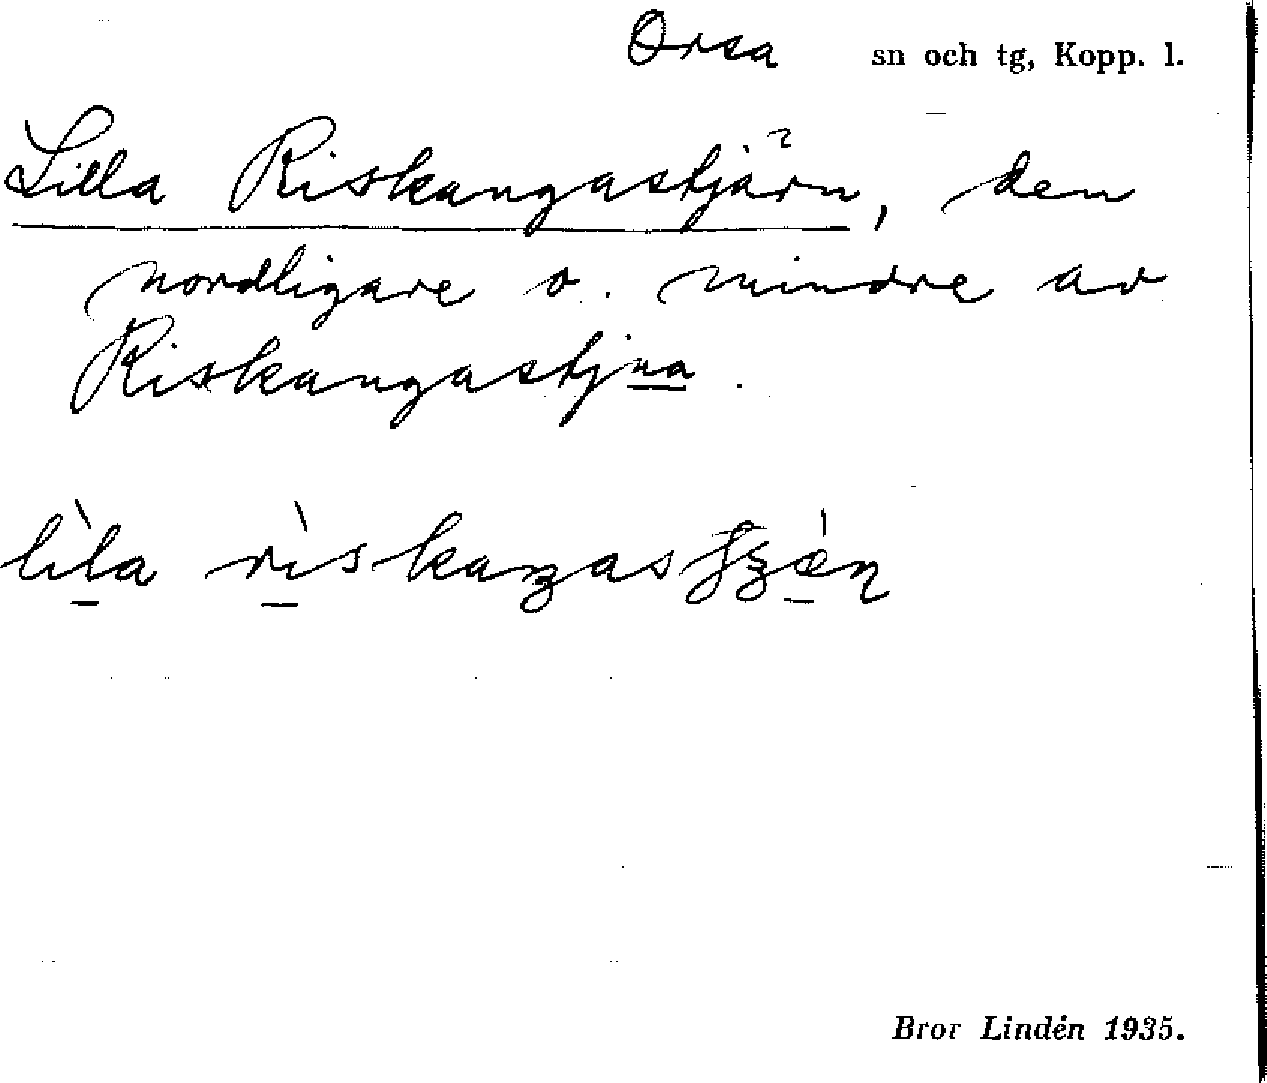 Orsa sn och tg, Kopp. l.
Lilla Riskangastjärn, den
nordligare o. mindre av
Riskangastjna.
lìla
Bror Lindén 1935.